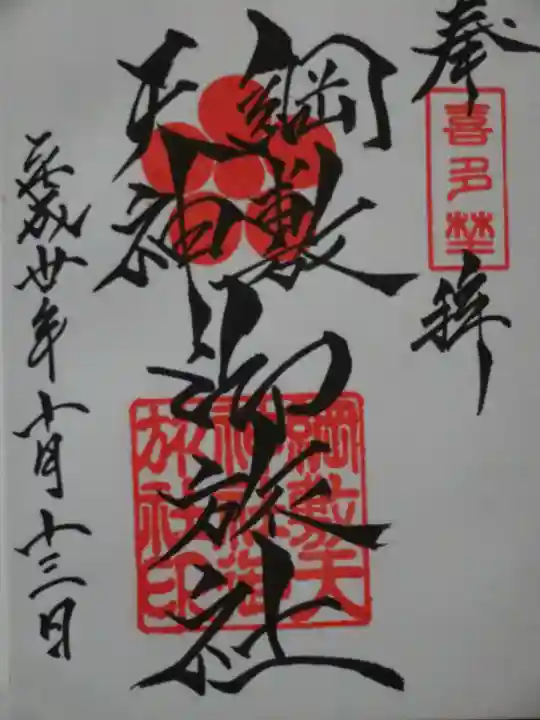 奉拝
喜多埜
綱敷
天神
御旅社
綱敷天
神社御
旅社印
平成廿年十月十三日